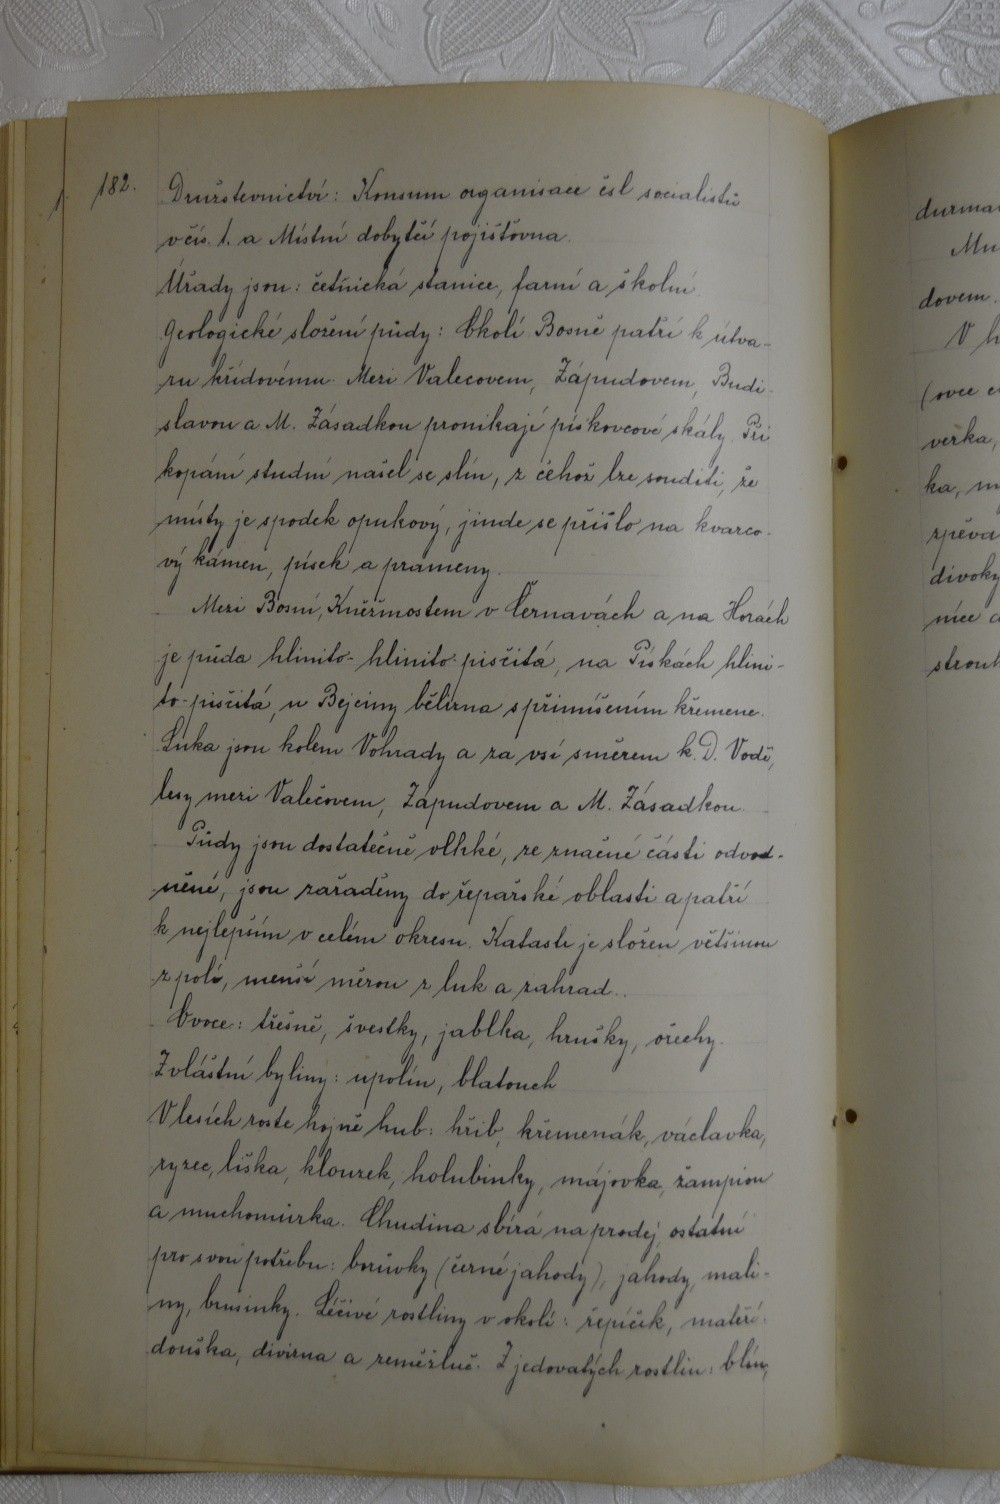 182.
Družstevnictví: Konsum organisace čsl socialistů
v čís. 1. a Místní dobytčí pojišťovna.
Úřady jsou: četnická stanice, farní a školní.
Geologické složení půdy: Okolí Bosně patří k útva-
ru křídovému. Mezi Valecovem, Zápudovem, Budi-
slavou a M. Zásadkou pronikají pískovcové skály. Při
kopání studní našel se slín, z čehož lze souditi, že
místy je spodek opukový, jinde se přišlo na kvarco-
vý kámen, písek a prameny.
Mezi Bosní, Kněžmostem v Černavách a na Horách
je půda hlinito- hlinito-pisčitá, na Pískách hlini-
to-pisčitá, u Bejciny bělizna s přimíšením křemene.
Luka jsou kolem Vohrady a za vsí směrem k D. Vodě,
lesy mezi Valečovem, Zápudovem a M. Zásadkou.
Půdy jsou dostatečně vlhké, ze značné části odvod-
něné, jsou zařaděny do řepařské oblasti a patří
k nejlepším v celém okresu. Katastr je složen většinou
z polí, menší měrou z luk a zahrad.
Ovoce: třešně, švestky, jablka, hrušky, ořechy.
Zvláštní byliny: upolín, blatouch
V lesích roste hojně hub: hřib, křemenák, václavka,
ryzec, liška, klouzek, holubinky, májovka, žampion
a muchomůrka. Chudina sbírá na prodej, ostatní
pro svou potřebu: borůvky (černé jahody), jahody, mali-
ny, brusinky. Léčivé rostliny v okolí: řepíček, mateří-
douška, divizna a zeměžluč. Z jedovatých rostlin: blín,
durman
Mu
dovem.
V h
(ovce
veřka,
ka, m
zpěva
divoky
nice
strouh